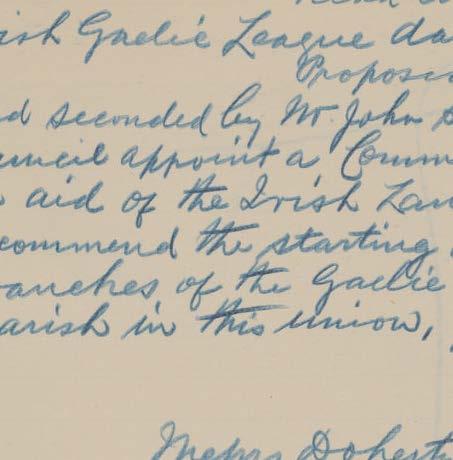 ish Gaelic League da
Proposed
d seconded by Mr. John
uncil appoint a Comm
aid of the Irish Lan
ecommend the starting
ranches of the Gaelic
arish in this union,
Messrs Dohert